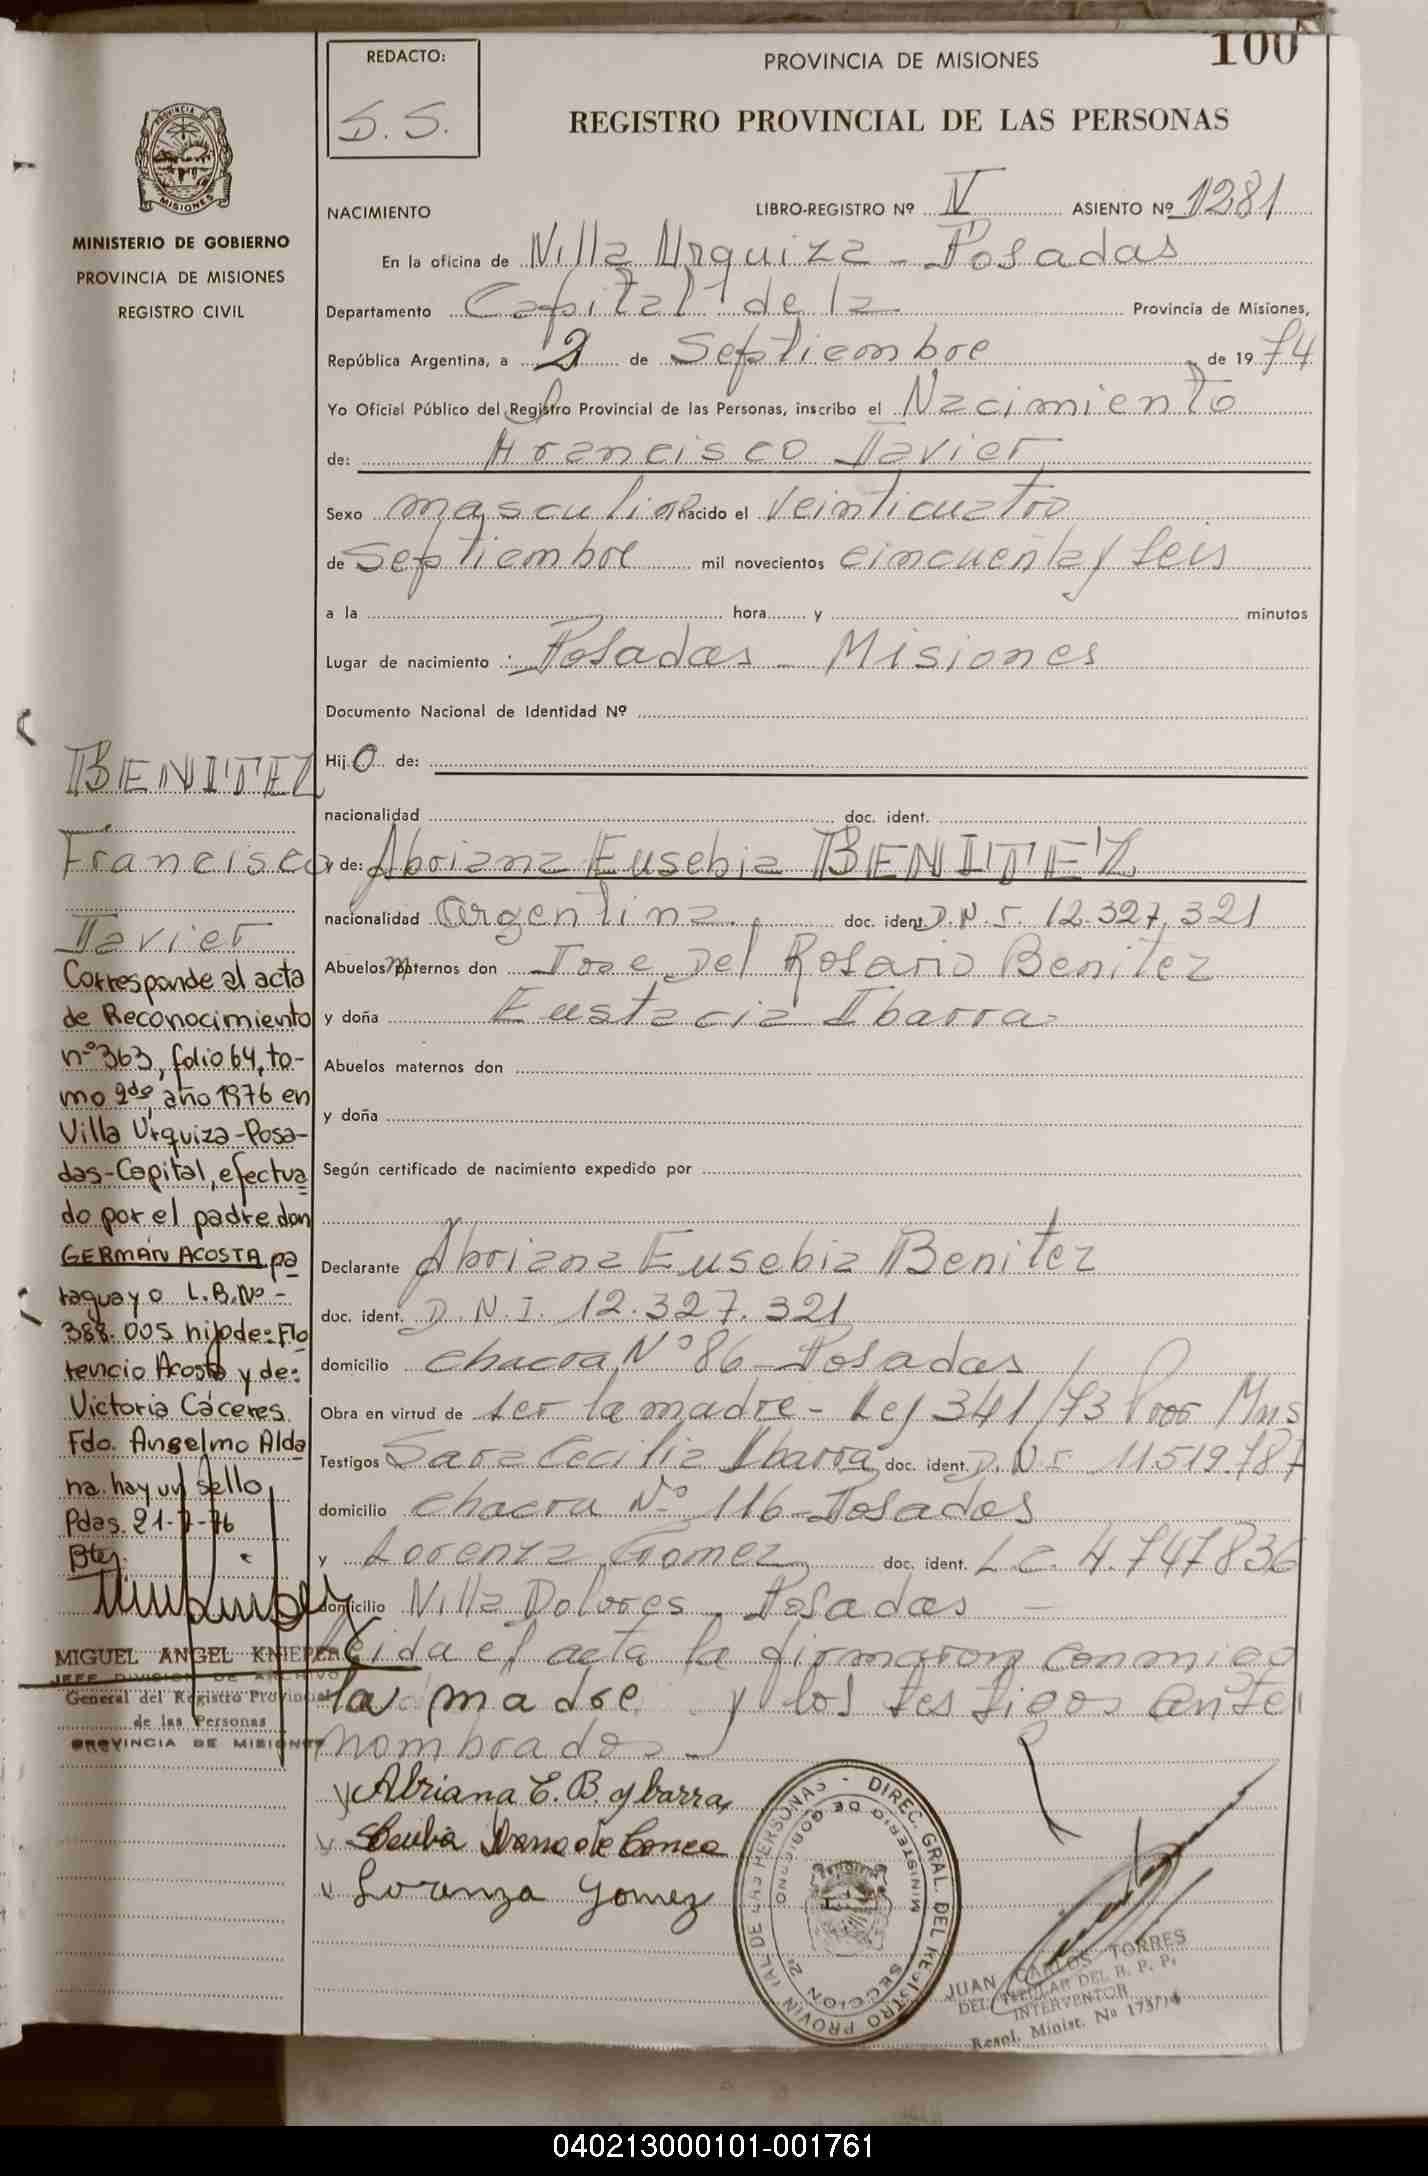 100
REDACTO:
S. S.
PROVINCIA DE MISIONES
REGISTRO PROVINCIAL DE LAS PERSONAS
MISIONES
MINISTERIO DE GOBIERNO
PROVINCIA DE MISIONES
REGISTRO CIVIL
NACIMIENTO LIBRO-REGISTRO Nº IV ASIENTO Nº 1281
En la oficina de Villa Urquiza - Posadas
Departamento Capital de la Provincia de Misiones,
República Argentina, a 2 de Septiembre de 1974
Yo Oficial Público del Registro Provincial de las Personas, inscribo el Nacimiento
de: Francisco Javier
Sexo masculino nacido el veinticuatro
de Septiembre mil novecientos cincuenta y seis
a la hora y minutos
Lugar de nacimiento Posadas - Misiones
Documento Nacional de Identidad Nº
Hijo de:
nacionalidad doc. ident.
y de: Abriana Eusebia BENITEZ
nacionalidad argentina doc. ident. D.N.I. 12.327.321
Abuelos maternos don Jose Del Rosario Benitez
y doña Eustacia Ibarra
Abuelos maternos don
y doña
Según certificado de nacimiento expedido por
Declarante Abriana Eusebia Benitez
doc. ident. D.N.I. 12.327.321
domicilio chacra Nº 86 - Posadas
Obra en virtud de ser la madre - Ley 341/73 Mns
Testigos Sara Cecilia Ibarra doc. ident. D.N.I. 11.519.787
domicilio chacra Nº 116 - Posadas
y Lorenza Gomez doc. ident. L.C. 4.747.836
domicilio Villa Dolores - Posadas -
leida el acta la firmaron conmigo
la madre y los testigos ante
nombrados -
Abriana E. B. Ybarra
Lorenza Gomez
BENITEZ
Francisco
Javier
Corresponde al acta
de Reconocimiento
nº 363, folio 64, to-
mo 2do, año 1976 en
Villa Urquiza-Posa-
das-Capital, efectua
do por el padre don
GERMÁN ACOSTA pa
raguayo L.B.Nº-
388.005 hijo de: Flo
rencio Acosta y de:
Victoria Cáceres.
Fdo. Anselmo Alda
na. hay un sello
Pdas. 21-7-76
MIGUEL ANGEL KNIEPER
JEFE DIVISION DE ARCHIVO
General del Registro Provincial
de las Personas
PROVINCIA DE MISIONES
DIREC. GRAL. DEL REGISTRO PROVINCIAL DE LAS PERSONAS -
MINISTERIO DE GOBIERNO
SECCION 2ª
JUAN CARLOS TORRES
DEL. TITULAR DEL R. P. P.
INTERVENTOR
Resol. Minist. Nº 173/74
040213000101-001761